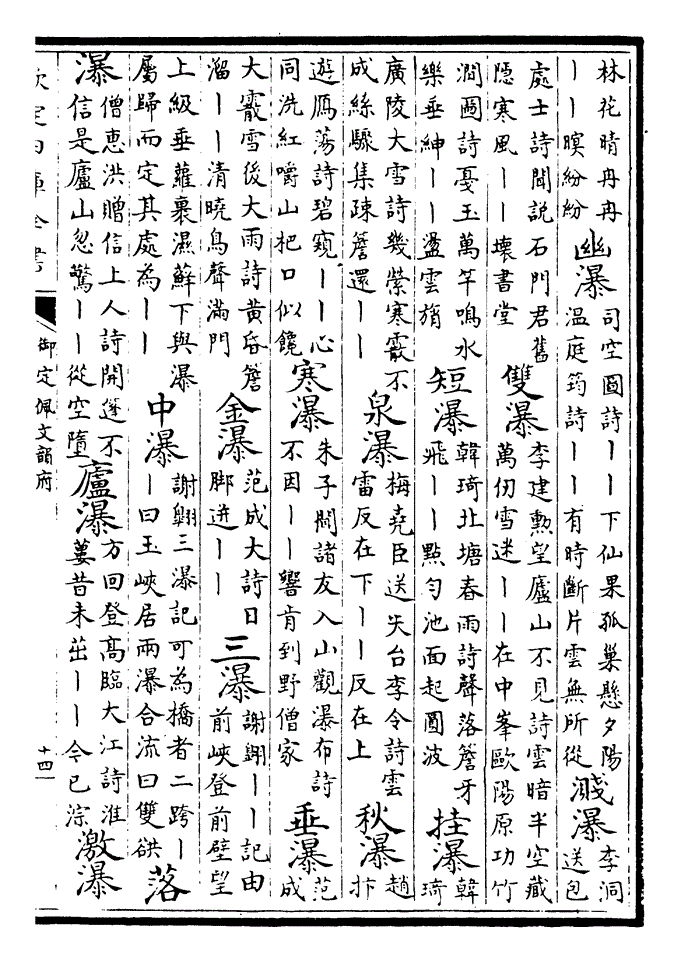 林花晴冉冉
｜｜暝紛紛
幽瀑
司空圖詩｜｜下仙果孤巢懸夕陽
溫庭筠詩｜｜有時斷片雲無所從
濺瀑
李洞
送包
處士詩聞説石門君舊
隱寒風｜｜壞書堂
雙瀑
李建勲望廬山不見詩雲暗半空藏
萬仞雪迷｜｜在中峯歐陽原功竹
澗圖詩戞玉萬竿鳴水
樂垂紳｜｜盪雲旓
短瀑
韓琦北塘春雨詩聲落簷牙
飛｜｜點勻池面起圓波
挂瀑
韓
琦
廣陵大雪詩幾縈寒霰不
成絲驟集疎簷還｜｜
泉瀑
梅堯臣送天台李令詩雲
雷反在下｜｜反在上
秋瀑
趙
抃
遊鴈蕩詩碧窺｜｜心
同洗紅嚼山杷口似饒
寒瀑
朱子聞諸友入山觀瀑布詩
不因｜｜響肯到野僧家
垂瀑
范
成
大霰雪後大雨詩黃昏簷
溜｜｜清曉鳥聲滿門
金瀑
范成大詩日
脚迸｜｜
三瀑
謝翺｜｜記由
前峽登前壁望
上級垂蘿裹濕蘚下與瀑
屬歸而定其處為｜｜
中瀑
謝翺三瀑記可為橋者二跨｜
｜曰玉峽居兩瀑合流曰雙
落
瀑
僧惠洪贈信上人詩開遮不
信是廬山忽驚｜｜從空墮
廬瀑
方回登高臨大江詩淮
蔞昔未茁｜｜今已淙
激瀑
欽定四庫全書
御定佩文韻府
十四